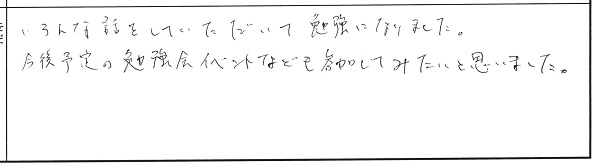 いろんな話をしていただいて勉強になりました。
今後予定の勉強会イベントなども参加してみたいと思いました。